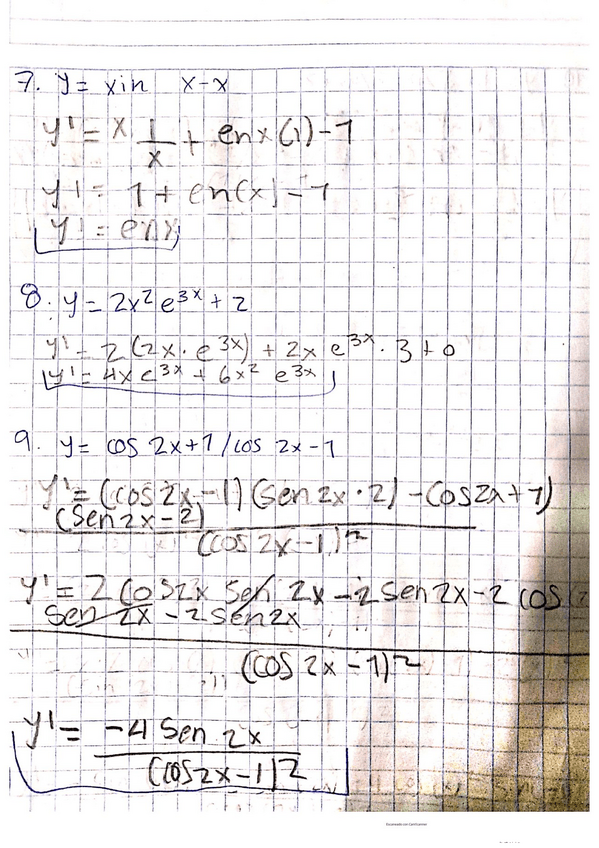 7. y = xin x-x
y' = x 1/x + enx(1)-1
y' = 1 + en(x) - 1
y' = enx
8. y = 2x² e^3x + 2
y' = 2 (2x · e^3x) + 2x e^3x · 3 + 0
y' = 4x e^3x + 6x² e^3x
9. y = cos 2x+1 / cos 2x-1
y' = (cos 2x - 1) (Sen 2x · 2) - Cos2x + 1)
(Sen 2x - 2)
(cos 2x - 1)²
y' = 2 Cos2x Sen 2x - 2 Sen 2x - 2 cos
Sen 2x - 2 Sen 2x
(cos 2x - 1)²
y' = -4 Sen 2x
(cos2x - 1)²
Escaneado con CamScanner